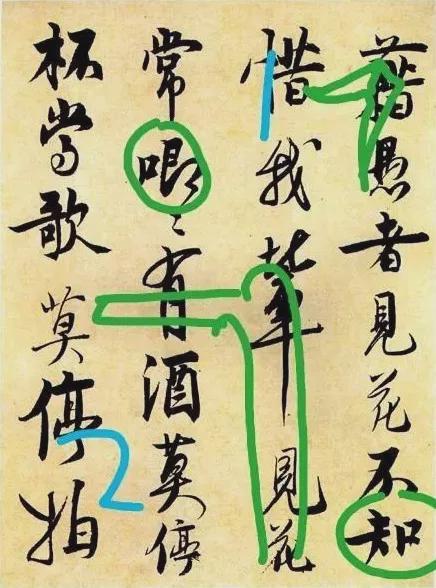 藉愚者見花不知
惜我輩見花
常唧〻有酒莫停
杯當歌莫停拍